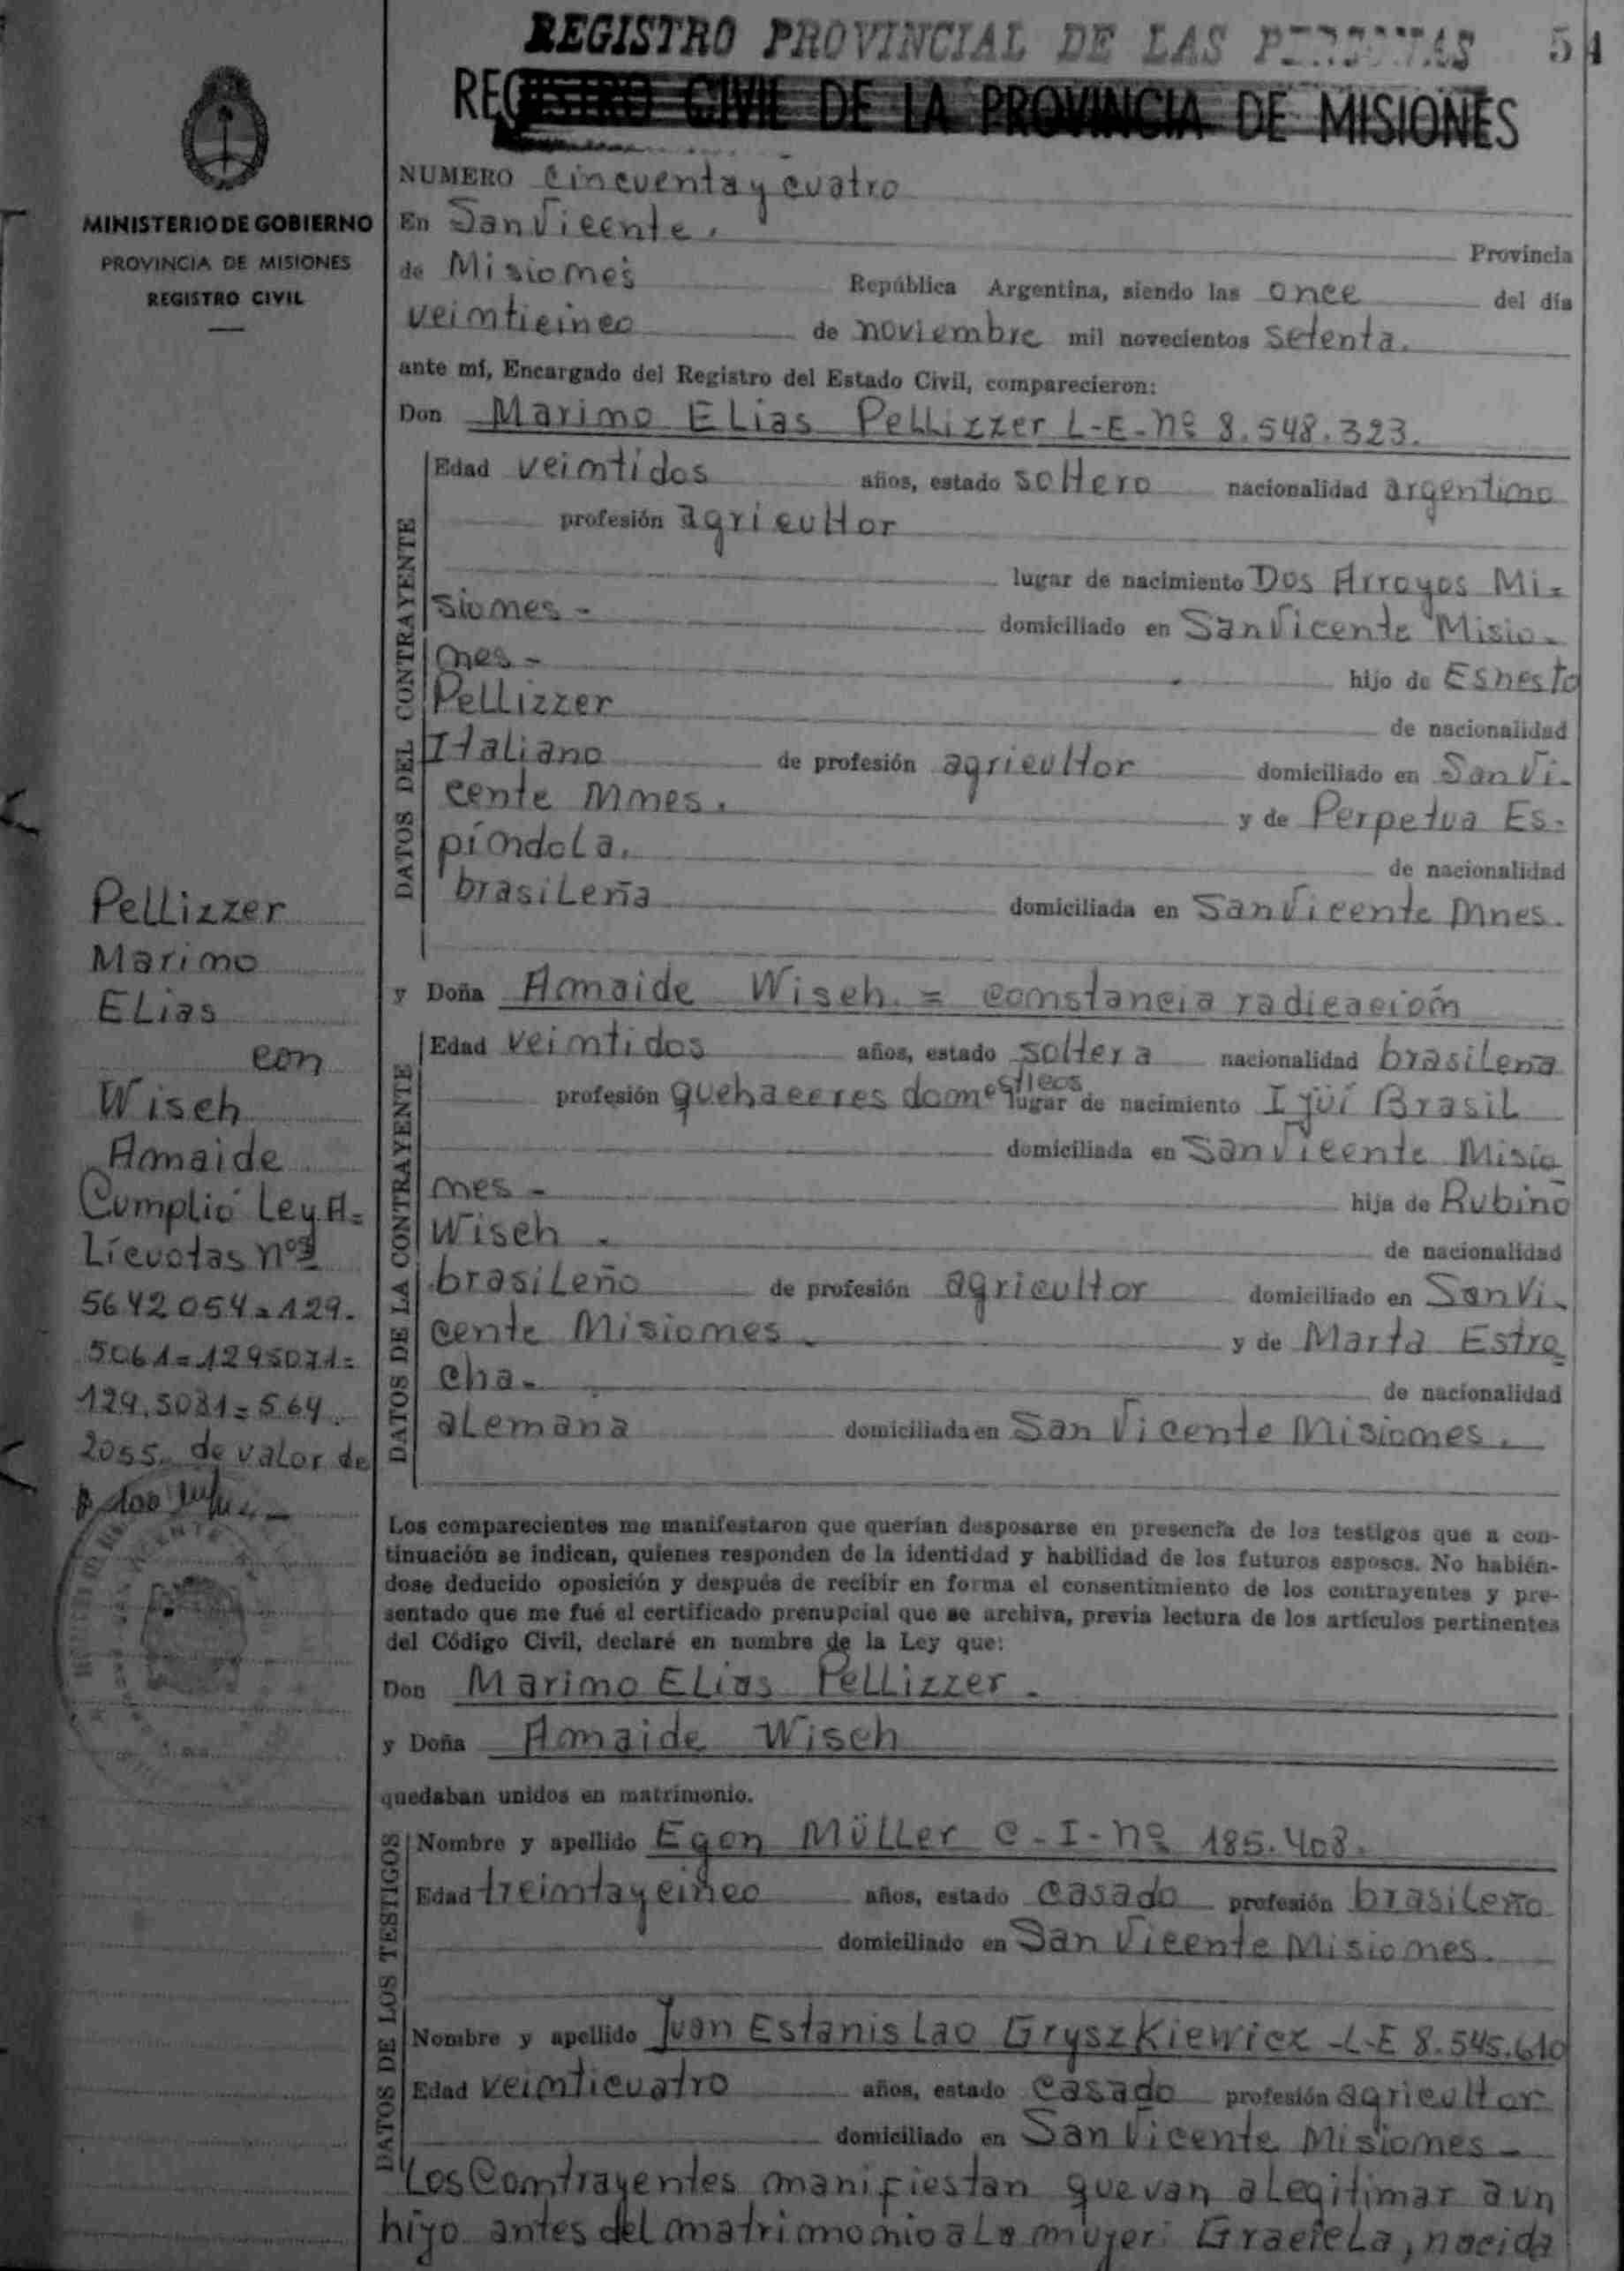 REGISTRO PROVINCIAL DE LAS PERSONAS 54
REGISTRO CIVIL DE LA PROVINCIA DE MISIONES
MINISTERIO DE GOBIERNO
PROVINCIA DE MISIONES
REGISTRO CIVIL
NUMERO cincuenta y cuatro
En San Vicente. Provincia
de Misiones República Argentina, siendo las once del día
veinticinco de noviembre mil novecientos setenta.
ante mí, Encargado del Registro del Estado Civil, comparecieron:
Don Marino Elias Pellizzer L-E-Nº 8.548.323.
DATOS DEL CONTRAYENTE
Edad veintidos años, estado soltero nacionalidad argentino
profesión agricultor
lugar de nacimiento Dos Arroyos Mi=
siones - domiciliado en San Vicente Misio-
nes - hijo de Esnesto
Pellizzer de nacionalidad
Italiano de profesión agricultor domiciliado en San Vi-
cente Mnes. y de Perpetua Es-
píndola. de nacionalidad
brasileña domiciliada en San Vicente Mnes.
y Doña Amaide Wisch = constancia radicación
DATOS DE LA CONTRAYENTE
Edad veintidos años, estado soltera nacionalidad brasileña
profesión quehaceres domesticos lugar de nacimiento Ijuí Brasil
domiciliada en San Vicente Misio
nes - hija de Rubino
Wisch. de nacionalidad
brasileño de profesión agricultor domiciliado en San Vi-
cente Misiones. y de Marta Estro=
cha- de nacionalidad
alemana domiciliada en San Vicente Misiones.
Pellizzer
Marino
Elias
con
Wisch
Amaide
Cumplió Ley A=
Lícuotas nos
5642054=129.
5061=1295071=
129.5081=564.
2055. de valor de
Los comparecientes me manifestaron que querían desposarse en presencia de los testigos que a con-
tinuación se indican, quienes responden de la identidad y habilidad de los futuros esposos. No habién-
dose deducido oposición y después de recibir en forma el consentimiento de los contrayentes y pre-
sentado que me fué el certificado prenupcial que se archiva, previa lectura de los artículos pertinentes
del Código Civil, declaré en nombre de la Ley que:
Don Marino Elias Pellizzer.
y Doña Amaide Wisch
quedaban unidos en matrimonio.
DATOS DE LOS TESTIGOS
Nombre y apellido Egon Müller C-I-Nº 185.408.
Edad treinta y cinco años, estado casado profesión brasileño
domiciliado en San Vicente Misiones.
Nombre y apellido Juan Estanislao Gryszkiewicz -L-E 8.545.610
Edad veinticuatro años, estado casado profesión agricultor
domiciliado en San Vicente Misiones -
Los Contrayentes manifiestan que van a legitimar a un
hijo antes del matrimonio a la mujer: Graciela, nacida